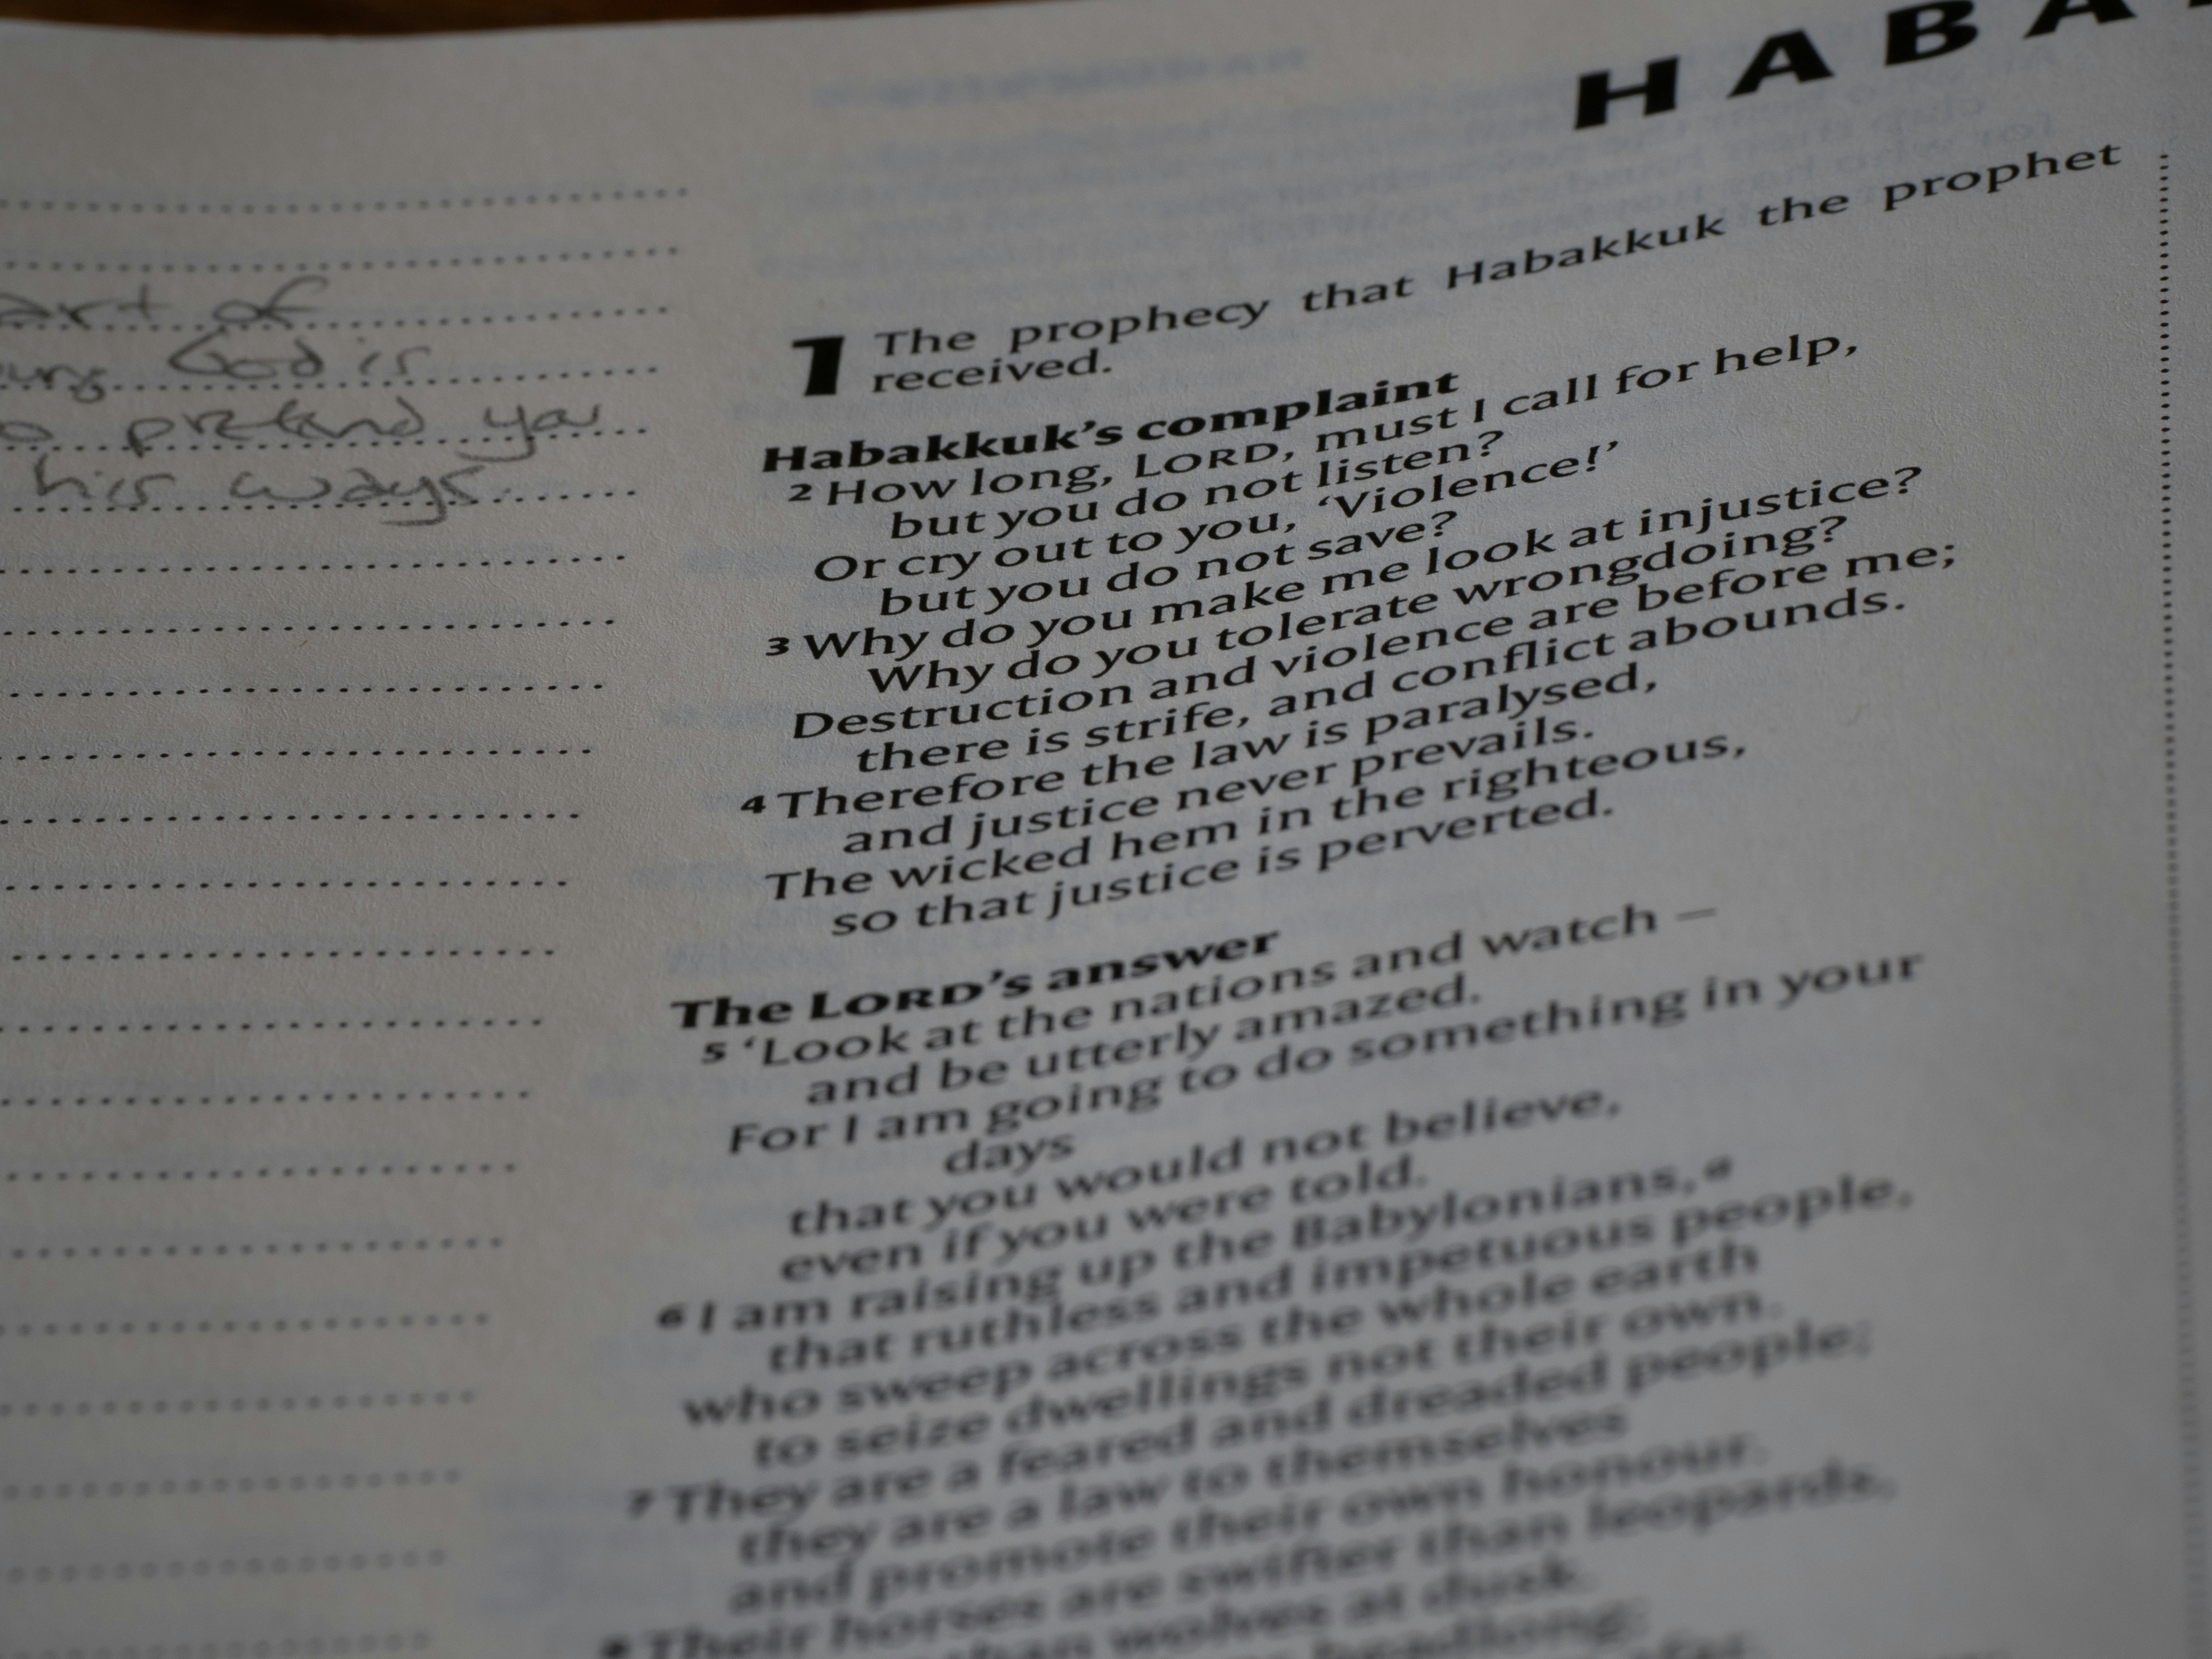 art of
God is
pretend you
his ways.
HABA
1 The prophecy that Habakkuk the prophet
received.
Habakkuk's complaint
2 How long, LORD, must I call for help,
but you do not listen?
Or cry out to you, ‘Violence!’
but you do not save?
3 Why do you make me look at injustice?
Why do you tolerate wrongdoing?
Destruction and violence are before me;
there is strife, and conflict abounds.
4 Therefore the law is paralysed,
and justice never prevails.
The wicked hem in the righteous,
so that justice is perverted.
The LORD's answer
5 ‘Look at the nations and watch –
and be utterly amazed.
For I am going to do something in your
days
that you would not believe,
even if you were told.
6 I am raising up the Babylonians,a
that ruthless and impetuous people,
who sweep across the whole earth
to seize dwellings not their own.
7 They are a feared and dreaded people;
they are a law to themselves
and promote their own honour.
8 Their horses are swifter than leopards,
than wolves at dusk.
headlong;